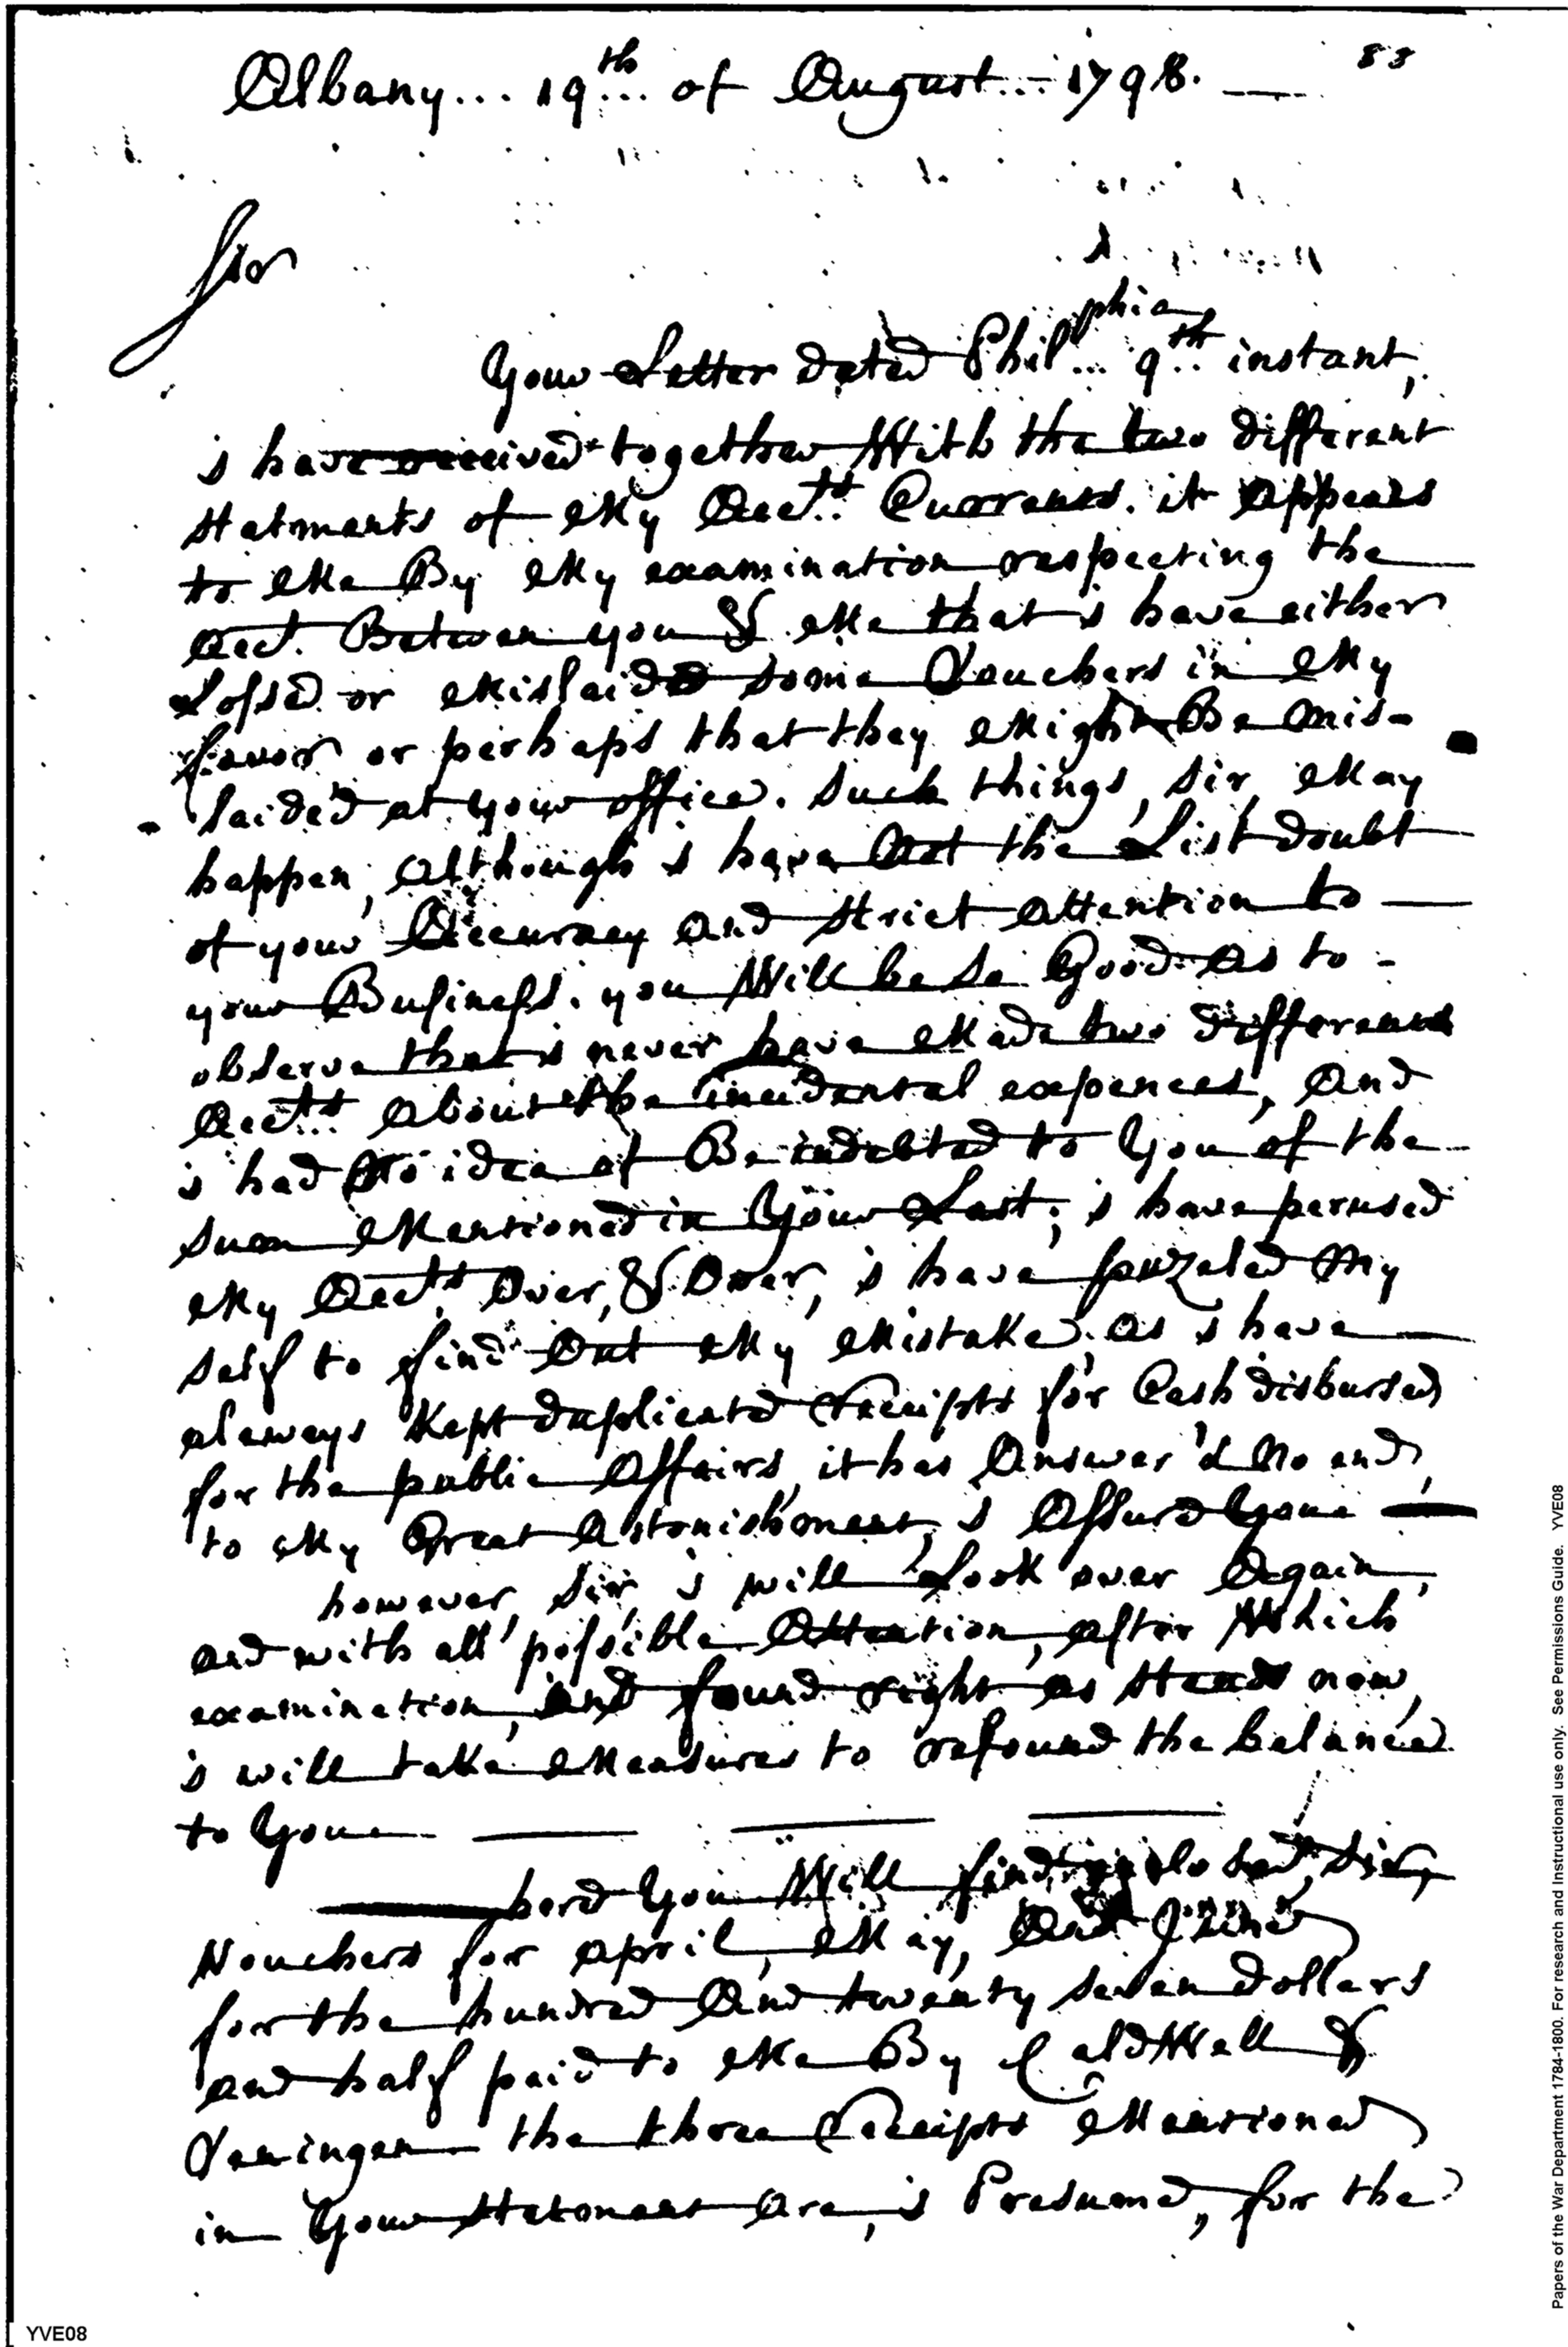 Albany... 19th... of August... 1798. —
88
Sir
Your Letter dated Philphia... 9th.. instant,
i have received together With the two different
Statments of My Acct.s Currents. it Appears
to Me By My examination respecting the
acct. Between you & Me that i have either
Lossd or Mislaided some Vouchers in My
favoir or perhaps that they Might Be Mis-
laided at your office. Such things, sir, May
happen, Although i have Not the List doubt
of your Accuracy And Strict Attention to —
your Business. you Will be So Good As to -
observe that i never have Made two different
Acct.s About the incidental expences, And
i had No idea of Be indebted to You of the
Sum Mentioned in Your Last; i have perused
My Acct.s Over, & Over, i have puzeled My
self to find Out My Mistake. As i have —
always Kept duplicated Receipts for Cash disbursed
for the public Affairs, it has Answer'd No end,
to My Great Astonishment, i Assurd You —
however, Sir, i will Look over Again,
and with all possible Attention, after Which
examination, And found right as Stands now,
i will take Measures to refound the balance
to You — — — —
— herd You Will find inclosed, Sir,
Vouchers for April, May, And June
for the hundred And twenty seven dollars
and half paid to Me By CaldWell &
the three Receipts Mentioned
in Your Statement Are, i Presume, for the
Papers of the War Department 1784-1800. For research and Instructional use only. See Permissions Guide. YVE08
YVE08